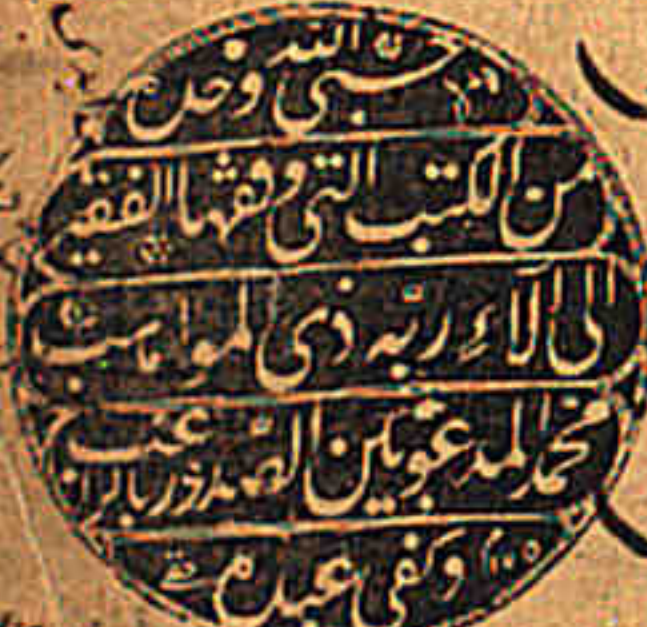 حسبى الله وحده
من الكتب التى وقفها الفقير
الى آلاء ربّه ذى المواهب
محمد المدعو بين الصدور بالراغب
وكفى عبده